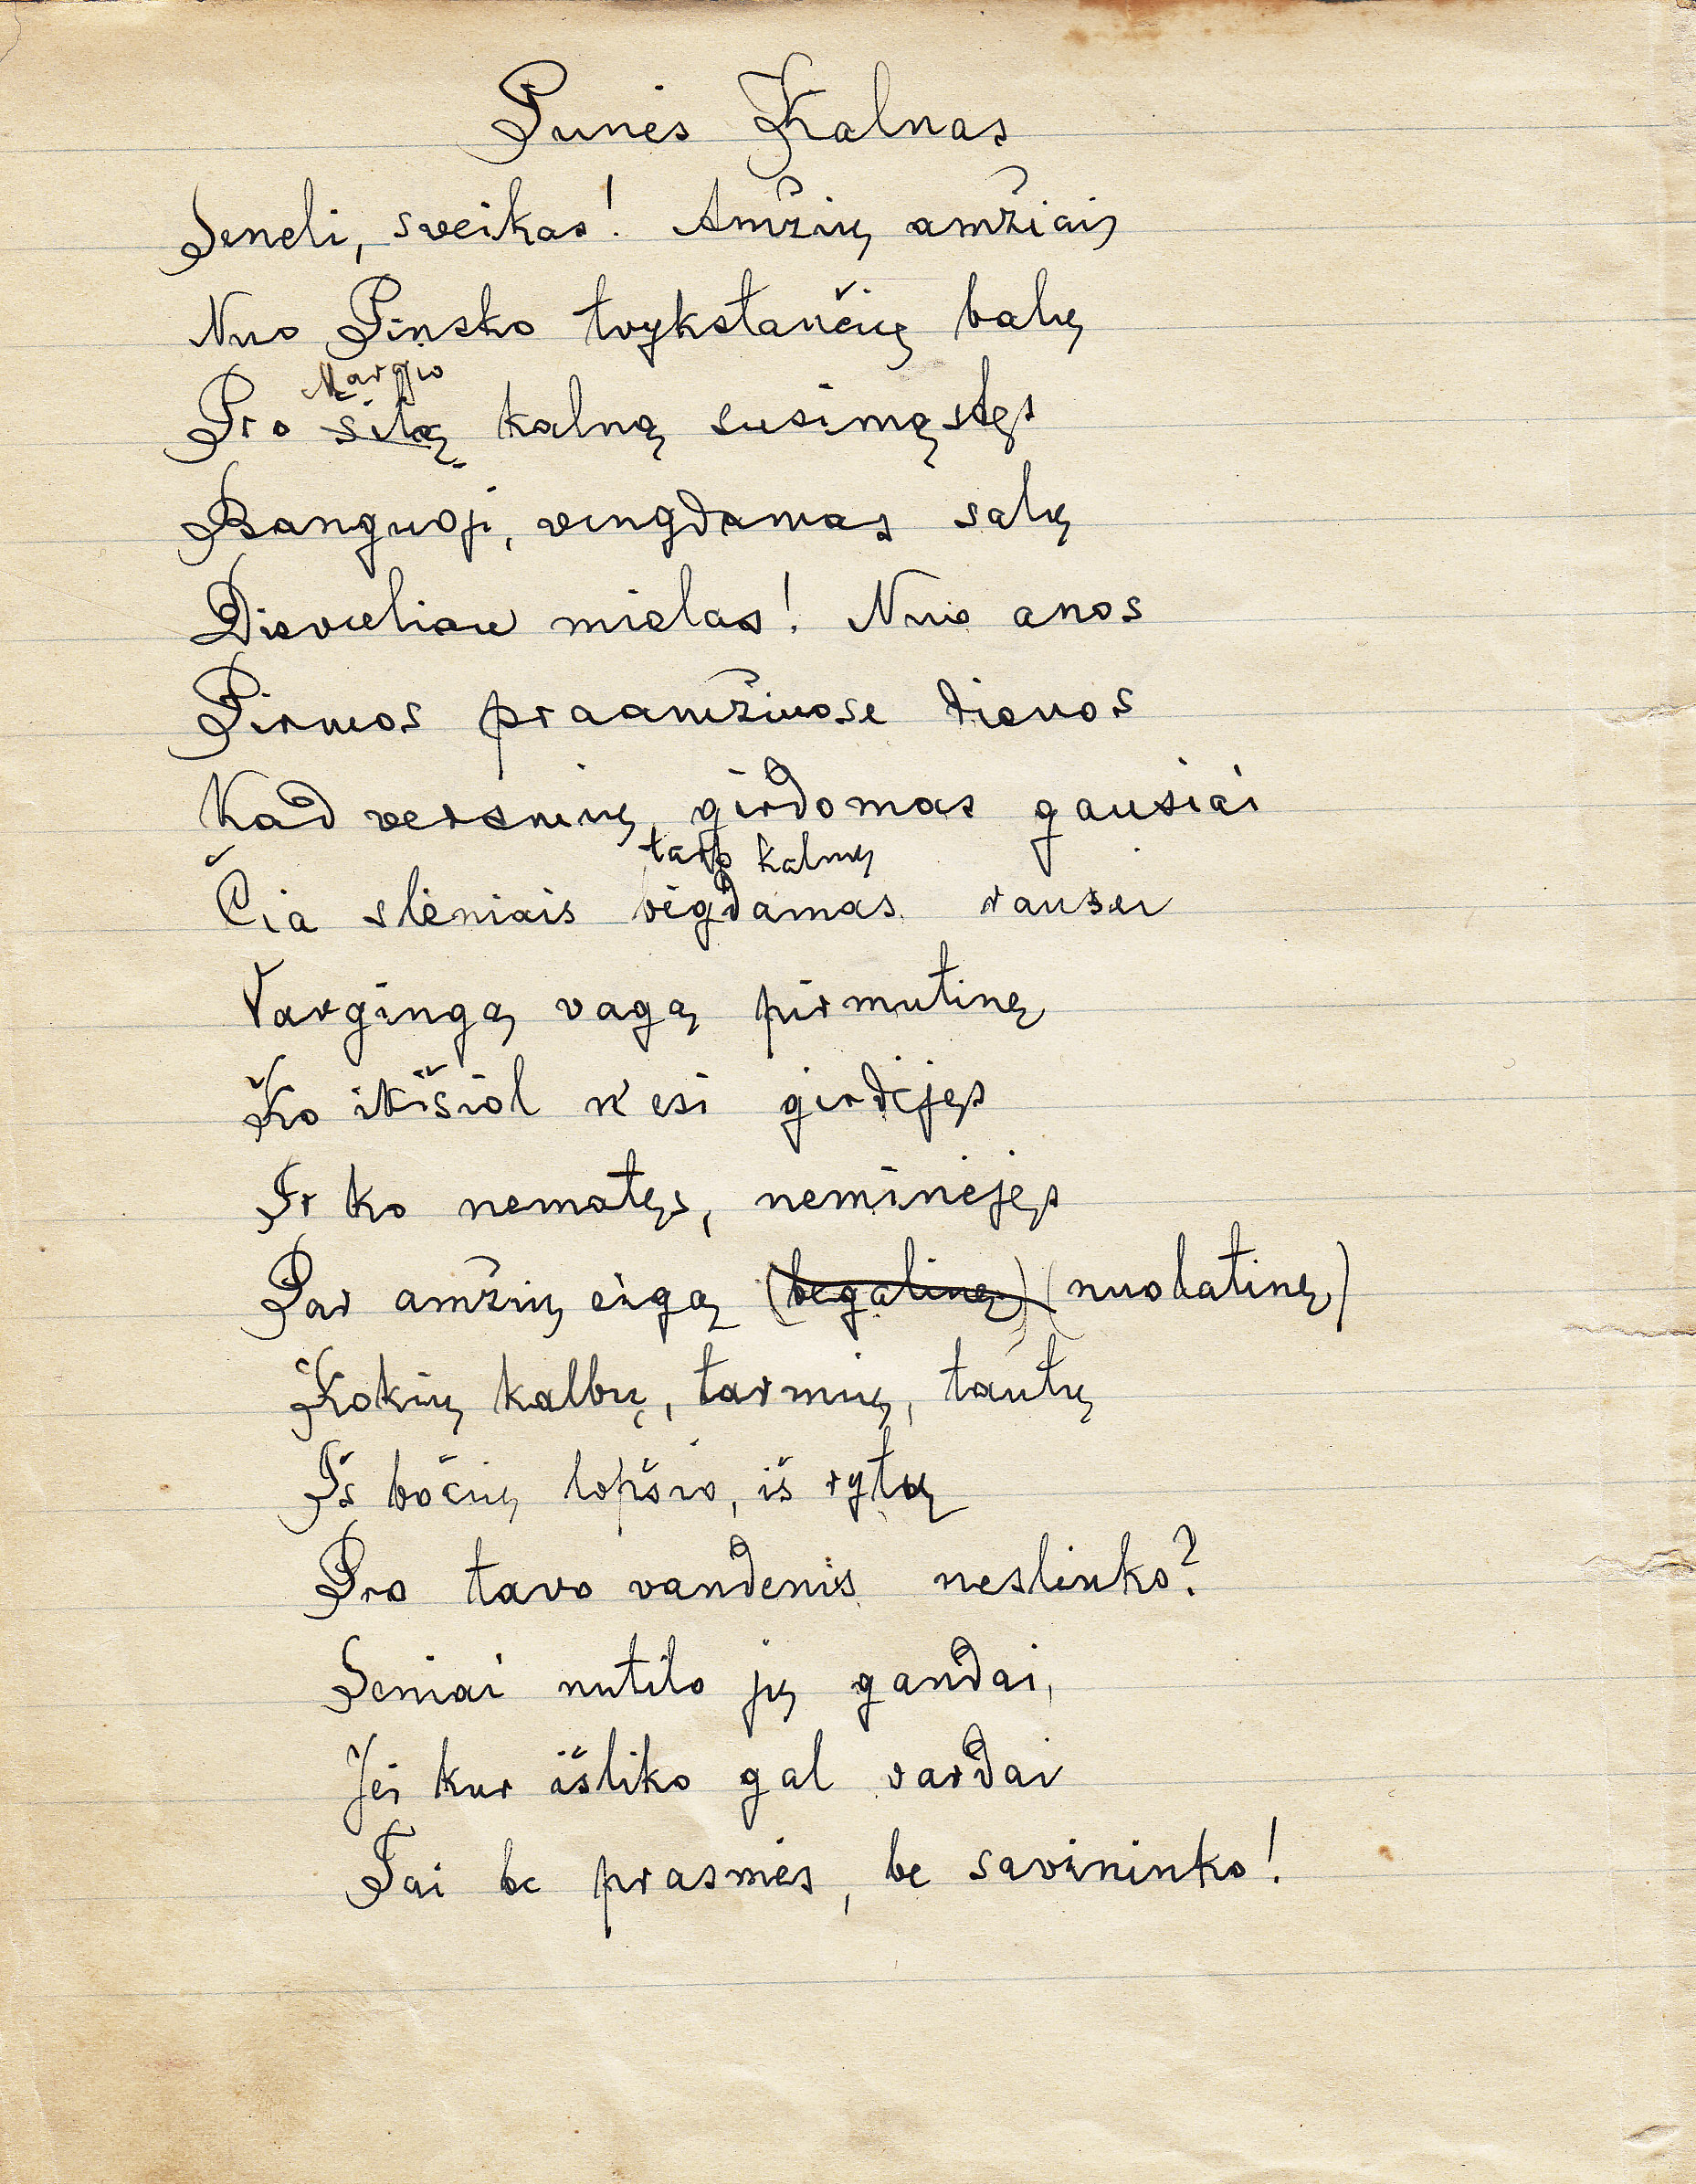 Punės Kalnas
Seneli, sveikas! Amžių amžiais
Nuo Pinsko tvykstančių balų
Margio
Pro šitą kalną susimąstęs
Banguoji, vingdamas salų
Dievuliau mielas! Nuo anos
Pirmos praamžiuose dienos
Kad versmių girdomas gausiai
tarp kalnų
Čia slėniais bėgdamas rausei
Vargingą vagą pirmutinę
Ko ikišiol n'esi girdėjęs
Ir ko nematęs, neminėjęs
Par amžių eigą (begalinę) (nuolatinę)
Kokių kalbų, tarmių, tautų
Iš bočių lopšio, iš rytų
Pro tavo vandenis neslinko?
Seniai nutilo jų gandai,
Jei kur išliko gal vardai
Tai be prasmės, be savininko!